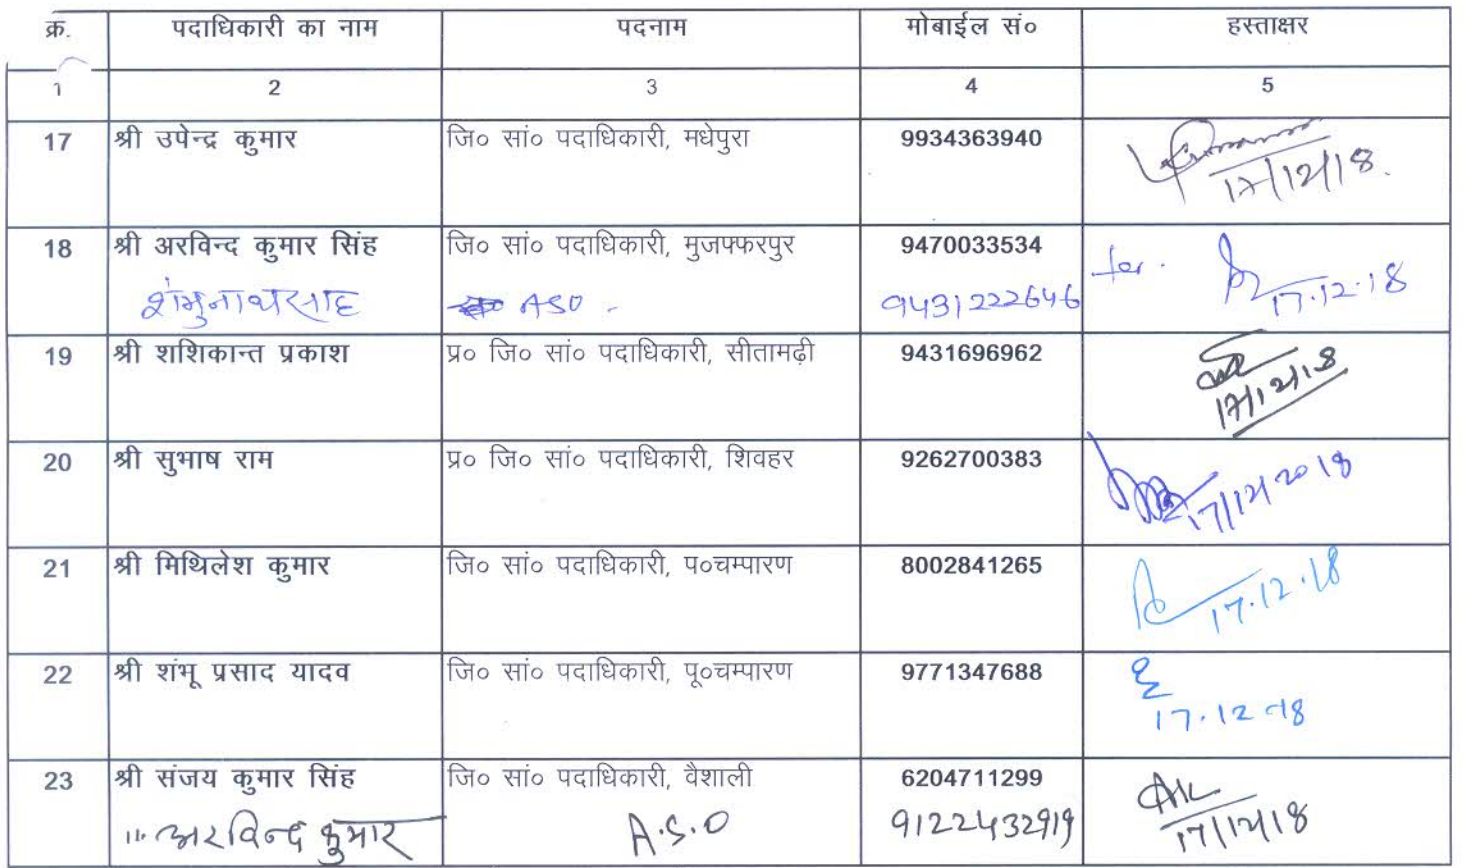 क्र. पदाधिकारी का नाम पदनाम मोबाईल सं० हस्ताक्षर
1 2 3 4 5
17 श्री उपेन्द्र कुमार जि० सां० पदाधिकारी, मधेपुरा 9934363940
17/12/18.
18 श्री अरविन्द कुमार सिंह जि० सां० पदाधिकारी, मुजफ्फरपुर 9470033534 for.
शंभुनाथ साह ASO - 9431222646 17.12.18
19 श्री शशिकान्त प्रकाश प्र० जि० सां० पदाधिकारी, सीतामढ़ी 9431696962
17/12/18
20 श्री सुभाष राम प्र० जि० सां० पदाधिकारी, शिवहर 9262700383
17/12/2018
21 श्री मिथिलेश कुमार जि० सां० पदाधिकारी, प०चम्पारण 8002841265
17.12.18
22 श्री शंभू प्रसाद यादव जि० सां० पदाधिकारी, पू०चम्पारण 9771347688
17.12.18
23 श्री संजय कुमार सिंह जि० सां० पदाधिकारी, वैशाली 6204711299
" अरविन्द कुमार A.S.O 9122432919 17/12/18